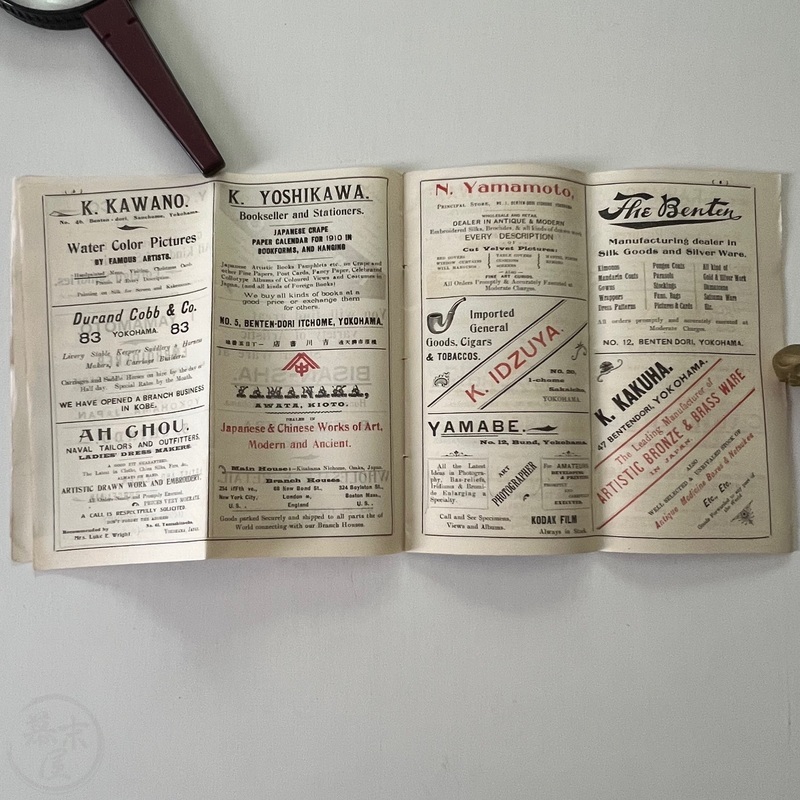 K. KAWANO.
No. 49, Benten-dori, Sanchome, Yokohama.
Water Color Pictures
BY FAMOUS ARTISTS.
Handpainted Menu, Visiting, Christmas Cards
Painting on Silk for Screen and Kakemono
Durand Cobb & Co.
83 YOKOHAMA. 83
Livery Stable Keepers Saddlery & Harness
Makers, & Carriage Builders.
Carriages and Saddle Horses on hire by the day or
Half day. Special Rates by the Month.
WE HAVE OPENED A BRANCH BUSINESS
IN KOBE.
AH CHOU.
NAVAL TAILORS AND OUTFITTERS.
LADIES' DRESS MAKERS.
A GOOD FIT GUARANTEED.
The Latest in Cloths, China Silks, Furs, &c.,
ALWAYS ON HAND
ARTISTIC DRAWN WORK AND EMBROIDERY.
Promptly Executed.
PRICES VERY MODERATE.
A CALL IS RESPECTFULLY SOLICITED
DON'T FORGET THE ADDRESS
Recommended by
Mrs. Luke E. Wright
No. 81, Yamashitacho,
YOKOHAMA, JAPAN.
K. YOSHIKAWA.
Bookseller and Stationers.
JAPANESE CRAPE
PAPER CALENDAR FOR 1910 IN
BOOKFORMS, AND HANGING
Japanese Artistic Books Pamphlets etc., on Crape and
other Fine Papers, Post Cards, Fancy Paper, Celebrated
Collotype Albums of Coloured Views and Costumes of
Japan, (and all kinds of Foreign Books)
We buy all kinds of books at a
good price or exchange them
for others.
NO. 5, BENTEN-DORI ITCHOME, YOKOHAMA.
YAMANAKA,
AWATA, KIOTO.
DEALER IN
Japanese & Chinese Works of Art,
Modern and Ancient.
Main House: Kitahama Nichome, Osaka, Japan.
Branch Houses
254 Fifth av., 68 New Bond St., 324 Boylston St.,
New York City, London w, Boston Mass.,
U.S. England U.S.
Goods packed Securely and shipped to all parts the of
World connecting with our Branch Houses.
N. Yamamoto,
PRINCIPAL STORE,
WHOLESALE AND RETAIL
DEALER IN ANTIQUE & MODERN
Embroidered Silks, Brocades, & all kinds of
EVERY DESCRIPTION
OF
Cut Velvet Pictures;
BED COVERS
WINDOW CURTAINS
WALL HANGINGS
TABLE COVERS
CUSHIONS
SCREENS
ALSO
FINE ART CURIOS.
All Orders Promptly & Accurately Executed at
Moderate Charges.
Imported
General
Goods, Cigars
& TOBACCOS.
K. IDZUYA.
No. 20,
1-chome
Sakaicho,
YOKOHAMA.
YAMABE.
No. 12, Bund, Yokohama.
All the Latest
Ideas in Photogra-
phy, Bas-reliefs,
Iridions & Bromi-
de Enlarging a
Specialty.
ART
PHOTOGRAPHER
For AMATEURS
DEVELOPING
& PRINTING
PROMPTLY
AND
CORRECTLY
EXECUTED.
Call and See Specimens,
Views and Albums.
KODAK FILM
Always in Stock
The Benten
Manufacturing dealer in
Silk Goods and Silver Ware.
Kimonos
Mandarin Coats
Gowns
Wrappers
Dress Patterns
Pongee Coats
Parasols
Stockings
Fans, Bags
Pictures & Cards
All kind of
Gold & Silver Work
Damascene
Satsuma Ware
Etc.
All orders promptly and accurately executed at
Moderate Charges.
NO. 12, BENTEN DORI, YOKOHAMA.
K. KAKUHA.
47 BENTENDORI, YOKOHAMA.
The Leading Manufacturer of
ARTISTIC BRONZE & BRASS WARE
IN JAPAN.
ALSO
WELL SELECTED & UNRIVALLED STOCK OF
Antique Medicine Boxes & Netsukes
Etc., Etc.
Goods Forwarded to any part of
the World
幕末屋